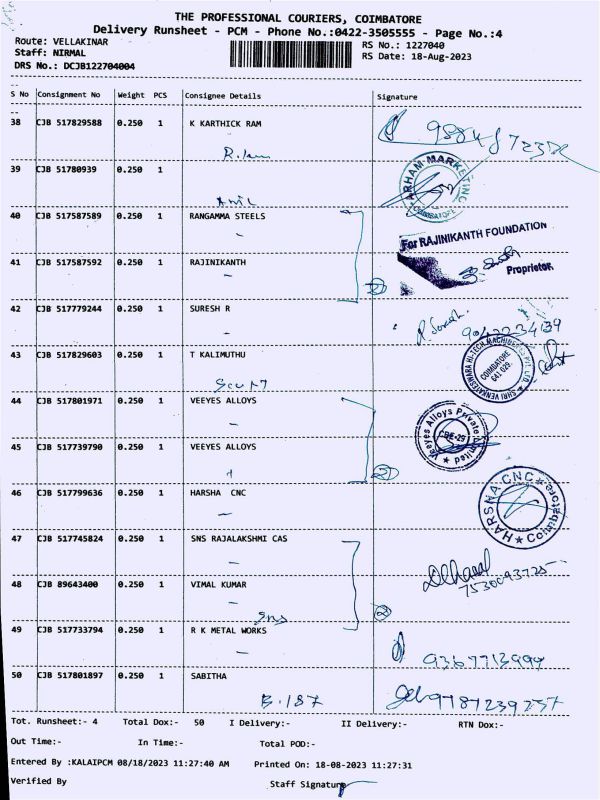 THE PROFESSIONAL COURIERS, COIMBATORE
Delivery Runsheet - PCM - Phone No.:0422-3505555 - Page No.:4
Route: VELLAKINAR
Staff: NIRMAL
DRS No.: DCJB122704004
RS No.: 1227040
RS Date: 18-Aug-2023
S No Consignment No Weight PCS Consignee Details Signature
38 CJB 517829588 0.250 1 K KARTHICK RAM
39 CJB 51780939 0.250 1
ARHAM MARKETING
COIMBATORE
Anil
40 CJB 517587589 0.250 1 RANGAMMA STEELS
For RAJINIKANTH FOUNDATION
41 CJB 517587592 0.250 1 RAJINIKANTH
Proprietor
42 CJB 517779244 0.250 1 SURESH R
43 CJB 517829603 0.250 1 T KALIMUTHU
SHRI VENKATESHWARA HI-TECH MACHINERIES PVT. LTD
COIMBATORE
641 029.
44 CJB 517801971 0.250 1 VEEYES ALLOYS
Veeyes Alloys Private Limited
CBE-29
45 CJB 517739790 0.250 1 VEEYES ALLOYS
2
46 CJB 517799636 0.250 1 HARSHA CNC
HARSHA CNC
Coimbatore
47 CJB 517745824 0.250 1 SNS RAJALAKSHMI CAS
48 CJB 89643400 0.250 1 VIMAL KUMAR
7530093725
Sns
2
49 CJB 517733794 0.250 1 R K METAL WORKS
9367713999
50 CJB 517801897 0.250 1 SABITHA
B.187
9787239757
Tot. Runsheet:- 4 Total Dox:- 50 I Delivery:- II Delivery:- RTN Dox:-
Out Time:- In Time:- Total POD:-
Entered By :KALAIPCM 08/18/2023 11:27:40 AM Printed On: 18-08-2023 11:27:31
Verified By Staff Signature